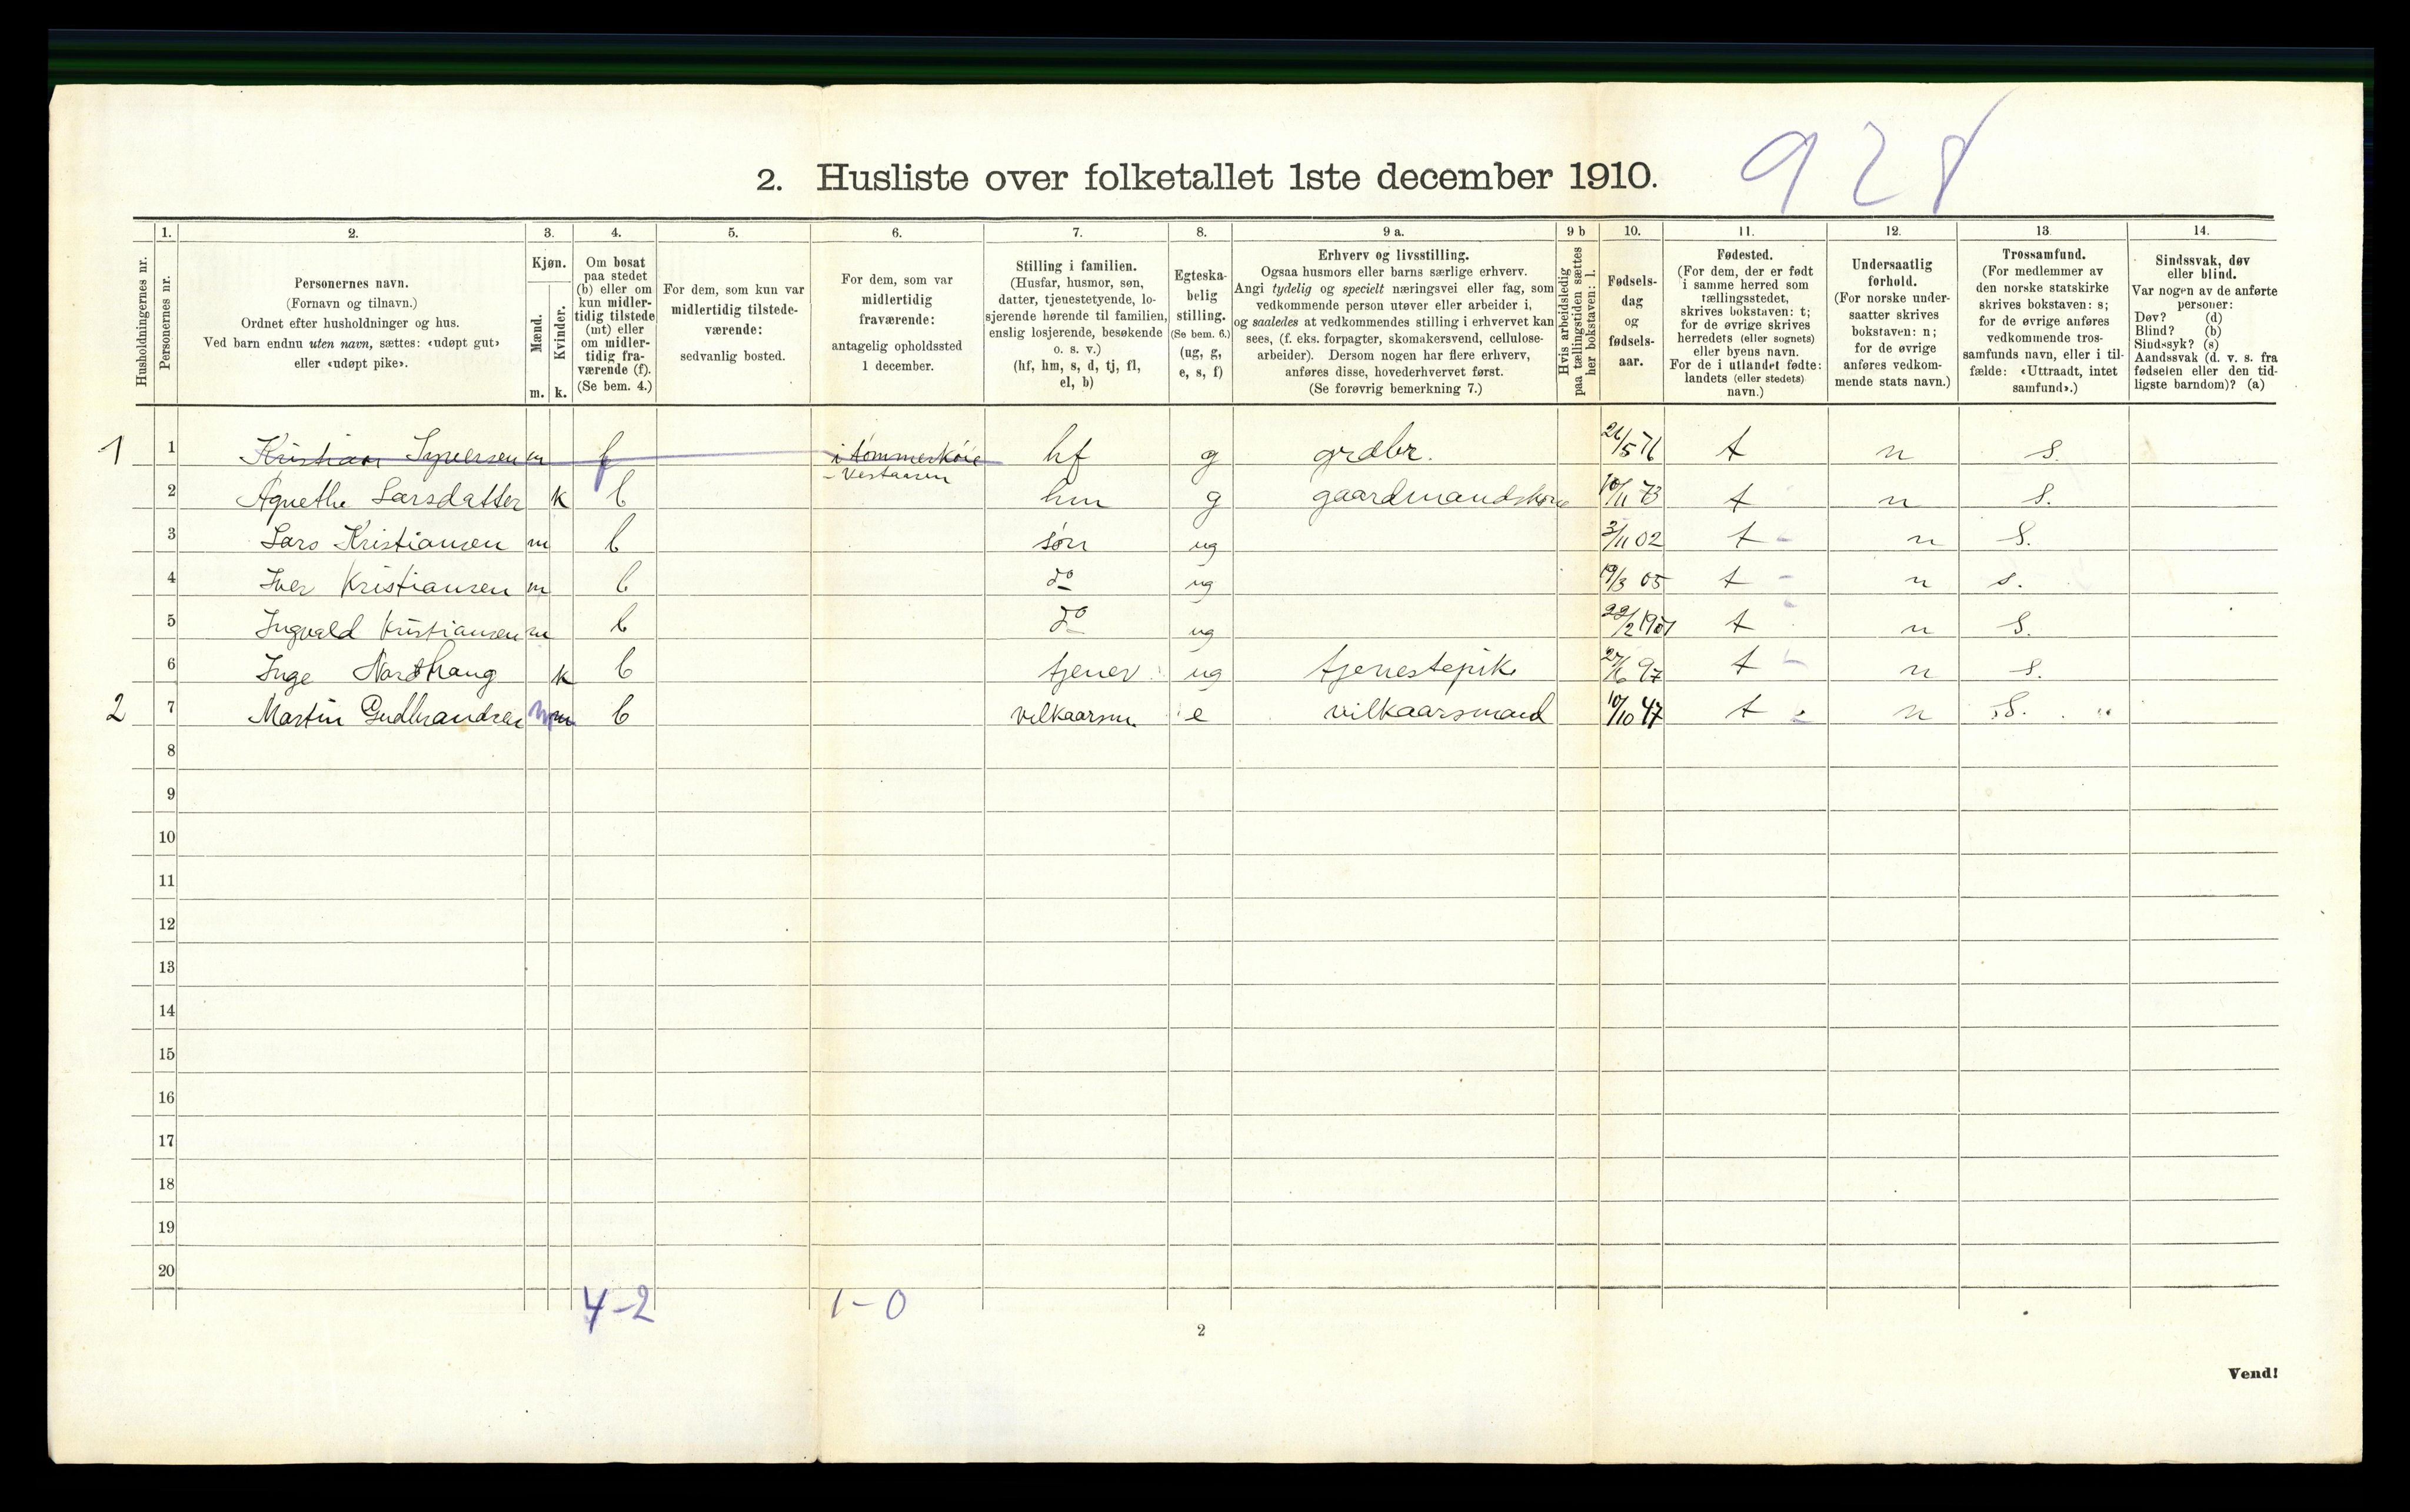 928
2. Husliste over folketallet 1ste december 1910.
Husholdningernes nr.
1.
Personernes nr.
2.
Personernes navn.
(Fornavn og tilnavn.)
Ordnet efter husholdninger og hus.
Ved barn endnu uten navn, sættes: «udøpt gut»
eller «udøpt pike».
3.
Kjøn.
Mænd.
m.
Kvinder.
k.
4.
Om bosat
paa stedet
(b) eller om
kun midler-
tidig tilstede
(mt) eller
om midler-
tidig fra-
værende (f).
(Se bem. 4.)
5.
For dem, som kun var
midlertidig tilstede-
værende:
sedvanlig bosted.
6.
For dem, som var
midlertidig
fraværende:
antagelig opholdssted
1 december.
7.
Stilling i familien.
(Husfar, husmor, søn,
datter, tjenestetyende, lo-
sjerende hørende til familien,
enslig losjerende, besøkende
o. s. v.)
(hf, hm, s, d, tj, fl,
el, b)
8.
Egteska-
belig
stilling.
(Se bem. 6.)
(ug, g,
e, s, f)
9 a.
Erhverv og livsstilling.
Ogsaa husmors eller barns særlige erhverv.
Angi tydelig og specielt næringsvei eller fag, som
vedkommende person utøver eller arbeider i,
og saaledes at vedkommendes stilling i erhvervet kan
sees, (f. eks. forpagter, skomakersvend, cellulose-
arbeider). Dersom nogen har flere erhverv,
anføres disse, hovederhvervet først.
(Se forøvrig bemerkning 7.)
9 b
Hvis arbeidsledig
paa tællingstiden sættes
her bokstaven: l.
10.
Fødsels-
dag
og
fødsels-
aar.
11.
Fødested.
(For dem, der er født
i samme herred som
tællingsstedet,
skrives bokstaven: t;
for de øvrige skrives
herredets (eller sognets)
eller byens navn.
For de i utlandet fødte:
landets (eller stedets)
navn.)
12.
Undersaatlig
forhold.
(For norske under-
saatter skrives
bokstaven: n;
for de øvrige
anføres vedkom-
mende stats navn.)
13.
Trossamfund.
(For medlemmer av
den norske statskirke
skrives bokstaven: s;
for de øvrige anføres
vedkommende tros-
samfunds navn, eller i til-
fælde: «Uttraadt, intet
samfund».)
14.
Sindssvak, døv
eller blind.
Var nogen av de anførte
personer:
Døv? (d)
Blind? (b)
Sindssyk? (s)
Aandssvak (d. v. s. fra
fødselen eller den tid-
ligste barndom)? (a)
1 1 Kristian Syversen m f i tømmerkøie hf g grdbr. 26/5 76 t n s.
- Vestaasen
2 Agnethe Larsdatter k b hm g gaardmandskone 10/11 73 t n s.
3 Lars Kristiansen m b søn ug 3/11 02 t - n s.
4 Iver Kristiansen m b do ug 19/3 05 t - n s.
5 Ingvald Kristiansen m b do ug 22/2 1907 t n s.
6 Inge Nordhaug k b tjener ug tjenestepike 27/6 97 t - n s.
2 7 Martin Gudbrandsen m b vilkaarsm e vilkaarsmand 10/10 47 t - n s.
8
9
10
11
12
13
14
15
16
17
18
19
20
4-2 1-0
2
Vend!